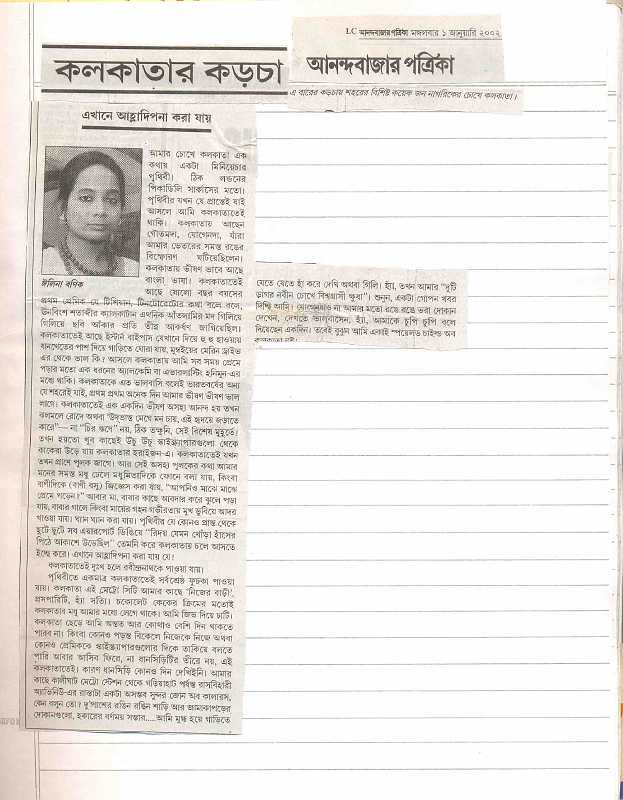 LC আনন্দবাজার পত্রিকা মঙ্গলবার ১ জানুয়ারি ২০০২
কলকাতার কড়চা
আনন্দবাজার পত্রিকা
এ বারের কড়চায় শহরের বিশিষ্ট কয়েক জন নাগরিকের চোখে কলকাতা।
এখানে আহ্লাদিপনা করা যায়
আমার চোখে কলকাতা এক
কথায় একটা মিনিয়েচার
পৃথিবী। ঠিক লন্ডনের
পিকাডিলি সার্কাসের মতো।
পৃথিবীর যখন যে প্রান্তেই যাই
আসলে আমি কলকাতাতেই
থাকি। কলকাতায় আছেন
গৌতমদা, যোগেনদা, যাঁরা
আমার ভেতরের সমস্ত রঙের
বিস্ফোরণ ঘটিয়েছিলেন।
কলকাতায় ভীষণ ভাবে আছে
বাংলা ভাষা। কলকাতাতেই
আছে ষোলো বছর বয়সের
ঈলিনা বণিক
প্রথম প্রেমিক যে টিশিয়ান, টিনটোরেটোর কথা বলে বলে,
ঊনবিংশ শতাব্দীর ক্যালকাটান এথনিক আঁতলামির মদ গিলিয়ে
গিলিয়ে ছবি আঁকার প্রতি তীব্র আকর্ষণ জাগিয়েছিল।
কলকাতাতেই আছে ইস্টার্ন বাইপাস যেখানে দিয়ে হু হু হাওয়ায়
ধানখেতের পাশ দিয়ে গাড়িতে ঘোরা যায়, মুম্বইয়ের মেরিন ড্রাইভ
এর থেকে ভাল কি? আসলে কলকাতায় আমি সব সময় প্রেমে
পড়ার মতো এক ধরনের অ্যালকেমি বা এভারলাস্টিং হনিমুন-এর
মধ্যে থাকি। কলকাতাকে এত ভালবাসি বলেই ভারতবর্ষের অন্য
যে শহরেই যাই, প্রথম প্রথম অনেক দিন আমার ভীষণ ভীষণ ভাল
লাগে। কলকাতাতেই এক একদিন ভীষণ অসহ্য আনন্দ হয় তখন
ঝলমলে রোদে অথবা "উদভ্রান্ত মেঘে মন চায়, এই হৃদয়ে জড়াতে
কারে"— না "চির ঋণে" নয়, ঠিক তক্ষুনি, সেই বিশেষ মুহূর্তে।
তখন হয়তো খুব কাছেই উঁচু উঁচু স্কাইস্ক্র্যাপারগুলো থেকে
কাকেরা উড়ে যায় কলকাতার হরাইজন-এ। কলকাতাতেই যখন
তখন প্রাণে পুলক জাগে। আর সেই অসহ্য পুলকের কথা আমার
মনের সমস্ত মধু ঢেলে মধুমিতাদিকে ফোনে বলা যায়, কিংবা
বাণীদিকে (বাণী বসু) জিজ্ঞেস করা যায়, "আপনিও মাঝে মাঝে
প্রেমে পড়েন?" আবার মা, বাবার কাছে আবদার করে ঝুলে পড়া
যায়, বাবার গালে কিংবা মায়ের গহন গভীরতায় মুখ ডুবিয়ে আদর
খাওয়া যায়। ঘ্যান ঘ্যান করা যায়। পৃথিবীর যে কোনও প্রান্ত থেকে
ছুটে ছুটে সব এয়ারপোর্ট ডিঙিয়ে "রিদয় যেমন খোঁড়া হাঁসের
পিঠে আকাশে উড়েছিল" তেমনি করে কলকাতায় চলে আসতে
ইচ্ছে করে। এখানে আহ্লাদিপনা করা যায় যে।
কলকাতাতেই দুঃখ হলে রবীন্দ্রনাথকে পাওয়া যায়।
পৃথিবীতে একমাত্র কলকাতাতেই সর্বশ্রেষ্ঠ ফুচকা পাওয়া
যায়। কলকাতা এই মেট্রো সিটি আমার কাছে 'নিজের বাড়ি',
প্রসপারিটি, হ্যাঁ সত্যি। চকোলেট কেকের ক্রিমের মতোই
কলকাতার মধু আমার মধ্যে লেগে থাকে। আমি জিভ দিয়ে চাটি।
কলকাতা ছেড়ে আমি অন্তত আর কোথাও বেশি দিন থাকতে
পারব না। কিংবা কোনও পড়ন্ত বিকেলে নিজেকে নিজে অথবা
কোনও প্রেমিককে স্কাইস্ক্র্যাপারগুলোর দিকে তাকিয়ে বলতে
পারি আবার আসিব ফিরে, না ধানসিড়িটির তীরে নয়, এই
কলকাতাতেই। কারণ ধানসিড়ি কোনও দিন দেখিইনি। আমার
কাছে কালীঘাট মেট্রো স্টেশন থেকে গড়িয়াহাট পর্যন্ত রাসবিহারী
অ্যাভিনিউ-এর রাস্তাটা একটা অসম্ভব সুন্দর জোন অব কালারস,
কেন বলুন তো? দু'পাশের রঙিন রঙিন শাড়ি আর জামাকাপড়ের
দোকানগুলো, হকারের বর্ণময় সম্ভার....আমি মুগ্ধ হয়ে গাড়িতে
যেতে যেতে হাঁ করে দেখি অথবা গিলি। হ্যাঁ, তখন আমার "দুটি
ডাগর নবীন চোখে বিশ্বগ্রাসী ক্ষুধা"। শুনুন, একটা গোপন খবর
দিচ্ছি আমি। যোগেনদাও না আমার মতো রঙে রঙে ভরা দোকান
দেখেন, দেখতে ভালবাসেন, হ্যাঁ, আমাকে চুপি চুপি বলে
দিয়েছেন একদিন। তবেই বুঝুন আমি একাই স্পয়েলড চাইল্ড অব